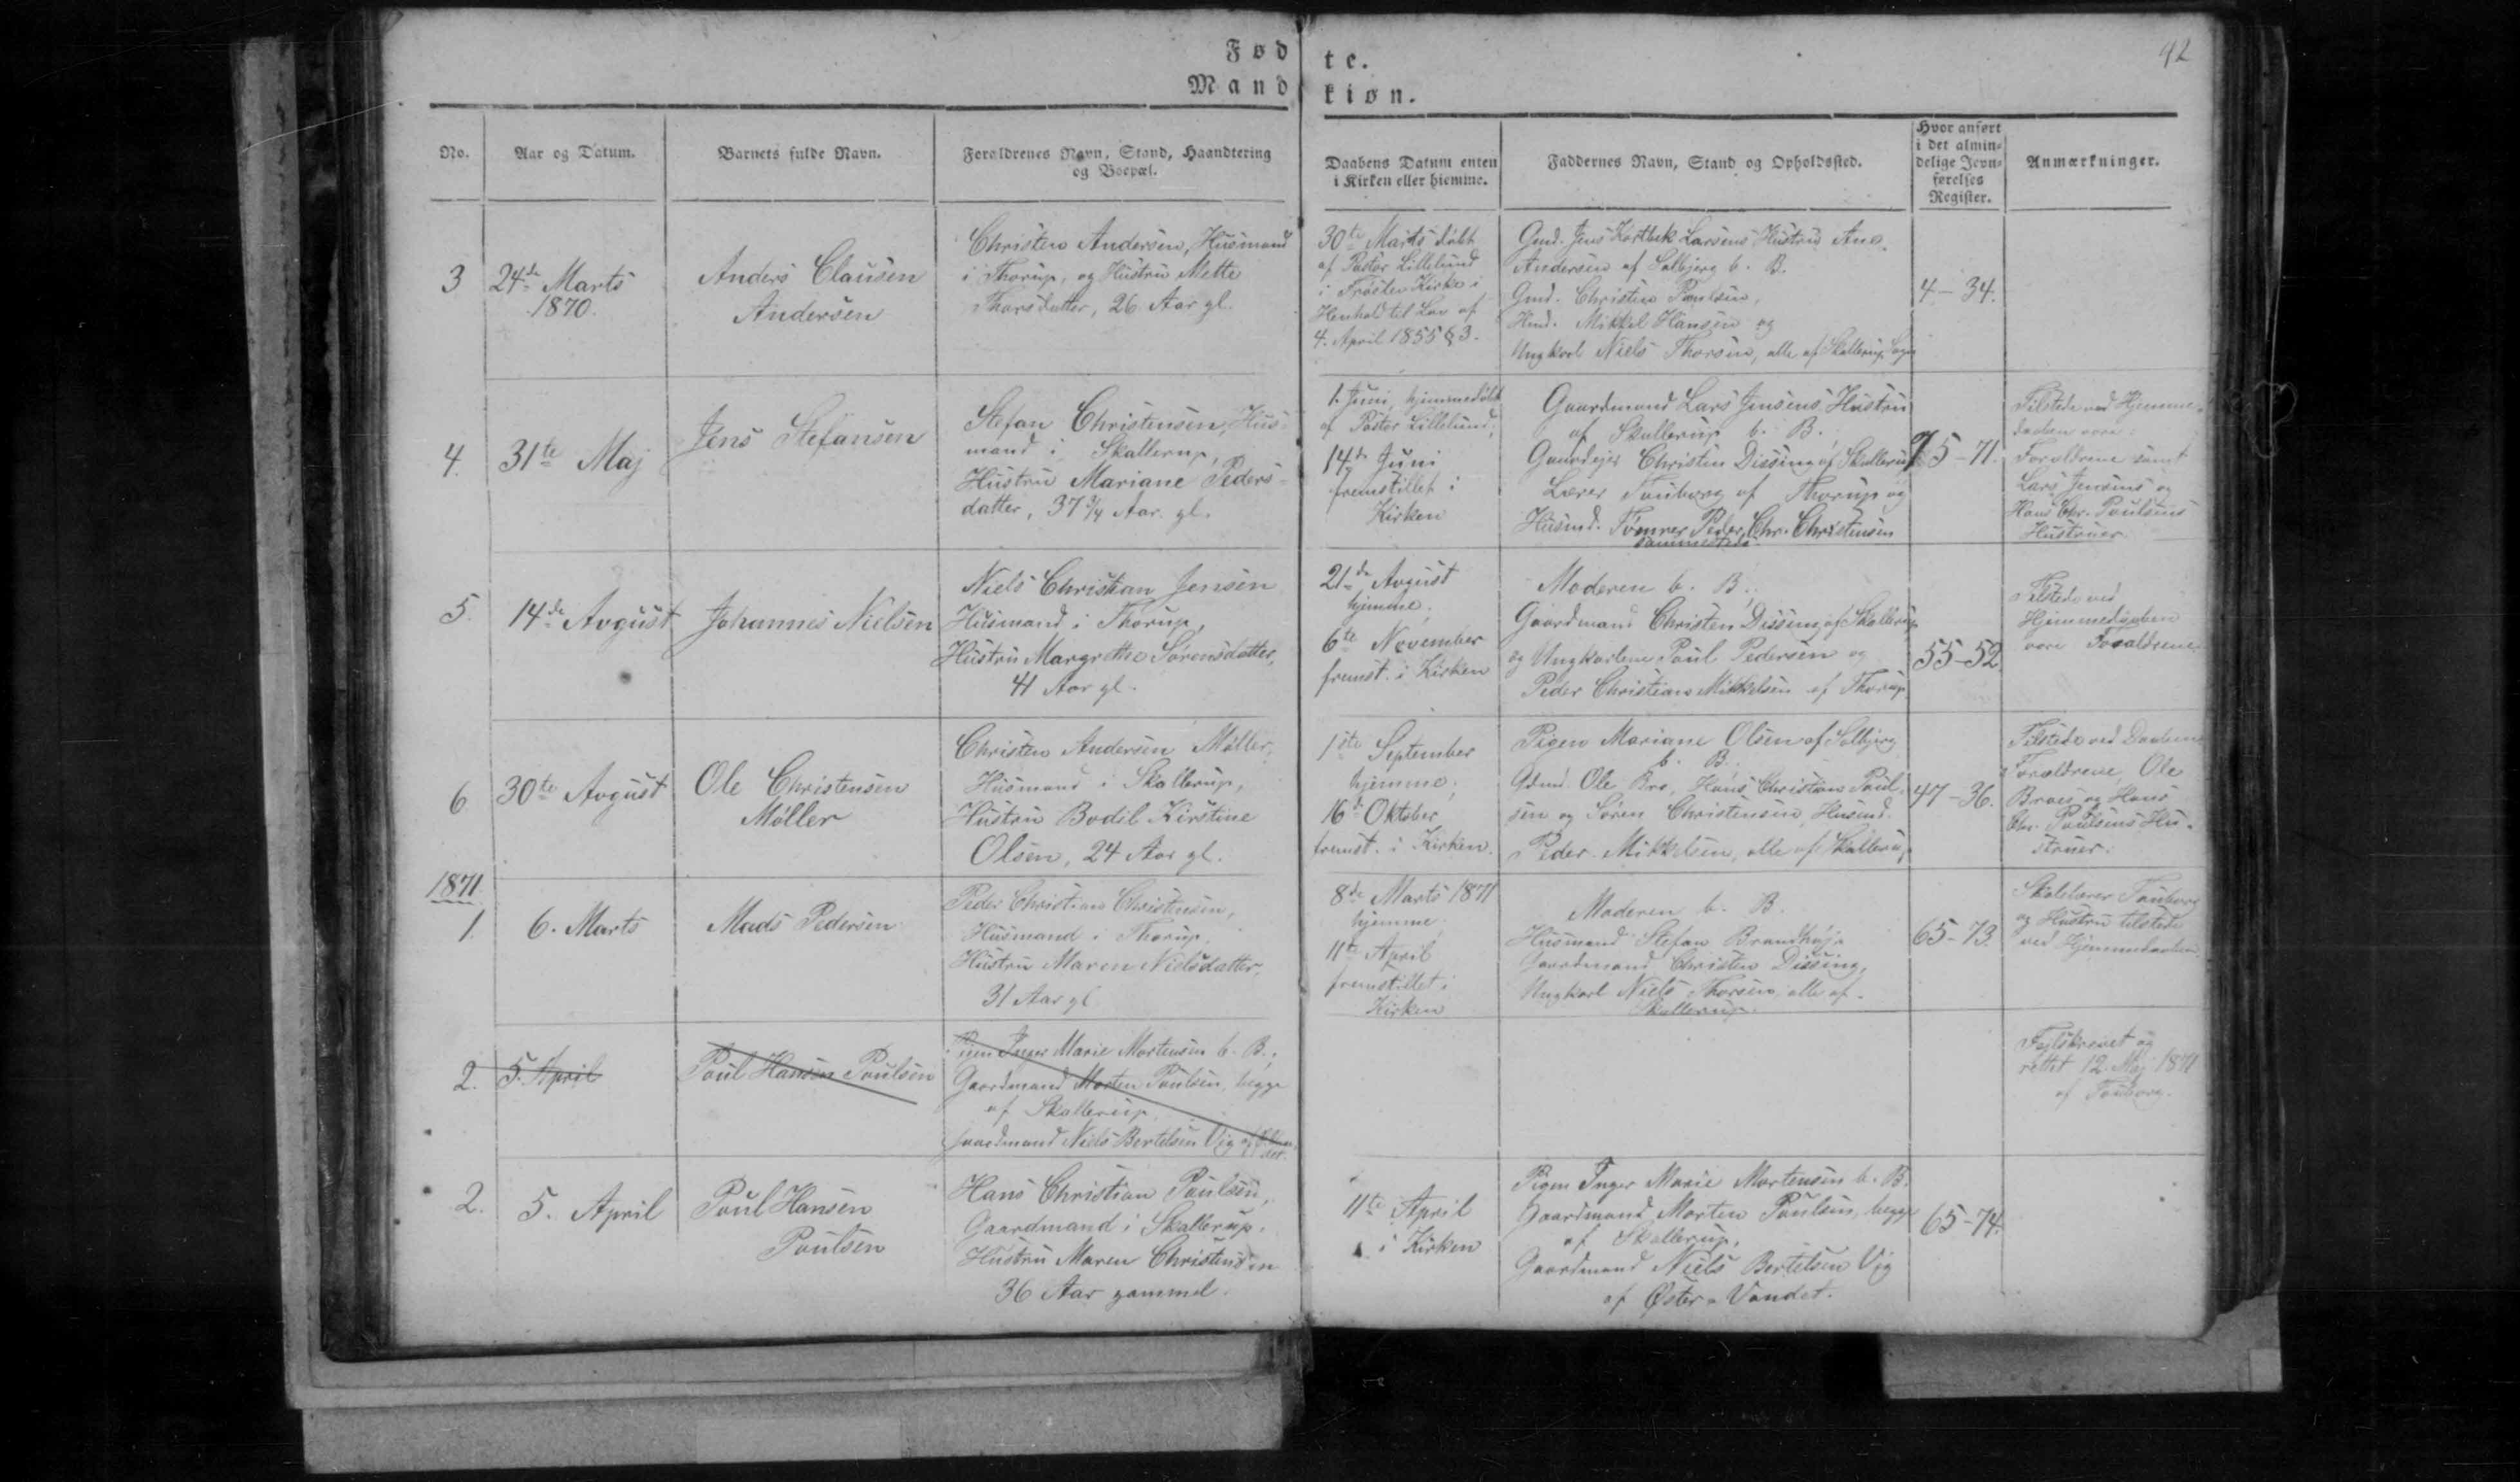 Fød te.
Mand kiøn.
92
No.
Aar og Datum.
Barnets fulde Navn.
Forældrenes Navn, Stand, Haandtering
og Boepæl.
Daabens Datum enten
i Kirken eller hiemme.
Faddernes Navn, Stand og Opholdssted.
Hvor anført
i det almin-
delige Jevn-
førelses
Register.
Anmærkninger.
3
24de Marts
1870.
Anders Clausen
Andersen
Christen Andersen, Husmand
i Thorup, og Hustru Mette
Thorsdatter, 26 Aar gl.
30te Marts døbt
af Pastor Lillelund
i Frøslev Kirke i
Henhold til Lov af
4. April 1855 § 3.
Gmd. Jens Kortbek Larsens Hustru Ane
Andersen af Solbjerg b. B.
Gmd. Christen Poulsen,
Hmd. Mikkel Hansen og
Ungkarl Niels Thorsen, alle af Skallerup Sogn
4-34.
4.
31te Maj
Jens Stefansen
Stefan Christensen, Hus-
mand i Skallerup,
Hustru Mariane Peders-
datter, 37 3/4 Aar gl.
1. Juni hjemmedøbt
af Pastor Lillelund;
14de Juni
fremstillet i
Kirken
Gaardmand Lars Jensens Hustru
af Skallerup b. B.
Gaardejer Christen Dissing af Skallerup
Lærer Fauborg af Thorup og
Husmd. Tømrer Peder Chr. Christensen
sammesteds.
75-71.
Tilstede ved Hjemme-
daaben vare:
Forældrene samt
Lars Jensens og
Hans Chr. Poulsens
Hustruer
5.
14de Avgust
Johannes Nielsen
Niels Christian Jensen
Husmand i Thorup,
Hustru Margrethe Sørensdatter,
41 Aar gl.
21de Avgust
hjemme;
6te November
fremst. i Kirken
Moderen b. B.;
Gaardmand Christen Dissing af Skallerup
og Ungkarlene Poul Pedersen og
Peder Christian Mikkelsen af Thorup
55-52.
Tilstede ved
Hjemmedaaben
vare Forældrene.
6
30te Avgust
Ole Christensen
Møller
Christen Andersen Møller,
Husmand i Skallerup,
Hustru Bodil Kirstine
Olsen, 24 Aar gl.
1ste September
hjemme;
16de Oktober
fremst. i Kirken.
Pigen Mariane Olsen af Solbjerg
b. B.
Gdmd. Ole Bro, Hans Christian Poul-
sen og Søren Christensen, Husmd.
Peder Mikkelsen, alle af Skallerup
47-36.
Tilstede ved Daaben
Forældrene, Ole
Broes og Hans
Chr. Poulsens Hu-
struer.
1871.
1.
6. Marts
Mads Pedersen
Peder Christian Christensen,
Husmand i Thorup,
Hustru Maren Nielsdatter,
31 Aar gl
8de Marts 1871
hjemme
11te April
fremstillet i
Kirken
Moderen b. B.
Husmand Stefan Brandhøj,
Gaardmand Christen Dissing,
Ungkarl Niels Thorsen, alle af
Skallerup.
65-73.
Skolelærer Fauborg
og Hustru tilstede
ved Hjemmedaaben.
2.
5. April
Poul Hansen Poulsen
Pigen Inger Marie Mortensen b. B.,
Gaardmand Morten Poulsen, begge
af Skallerup,
Gaardmand Niels Bertelsen Vig af
Fejlskrevet og
rettet 12. Maj 1871
af Fauborg.
2.
5. April
Poul Hansen
Poulsen
Hans Christian Poulsen,
Gaardmand i Skallerup.
Hustru Maren Christensen
36 Aar gammel.
11te April
i Kirken
Pigen Inger Marie Mortensen b. B.
Gaardmand Morten Poulsen, begge
af Skallerup.
Gaardmand Niels Bertelsen Vig
af Øster-Vandet.
65-74.